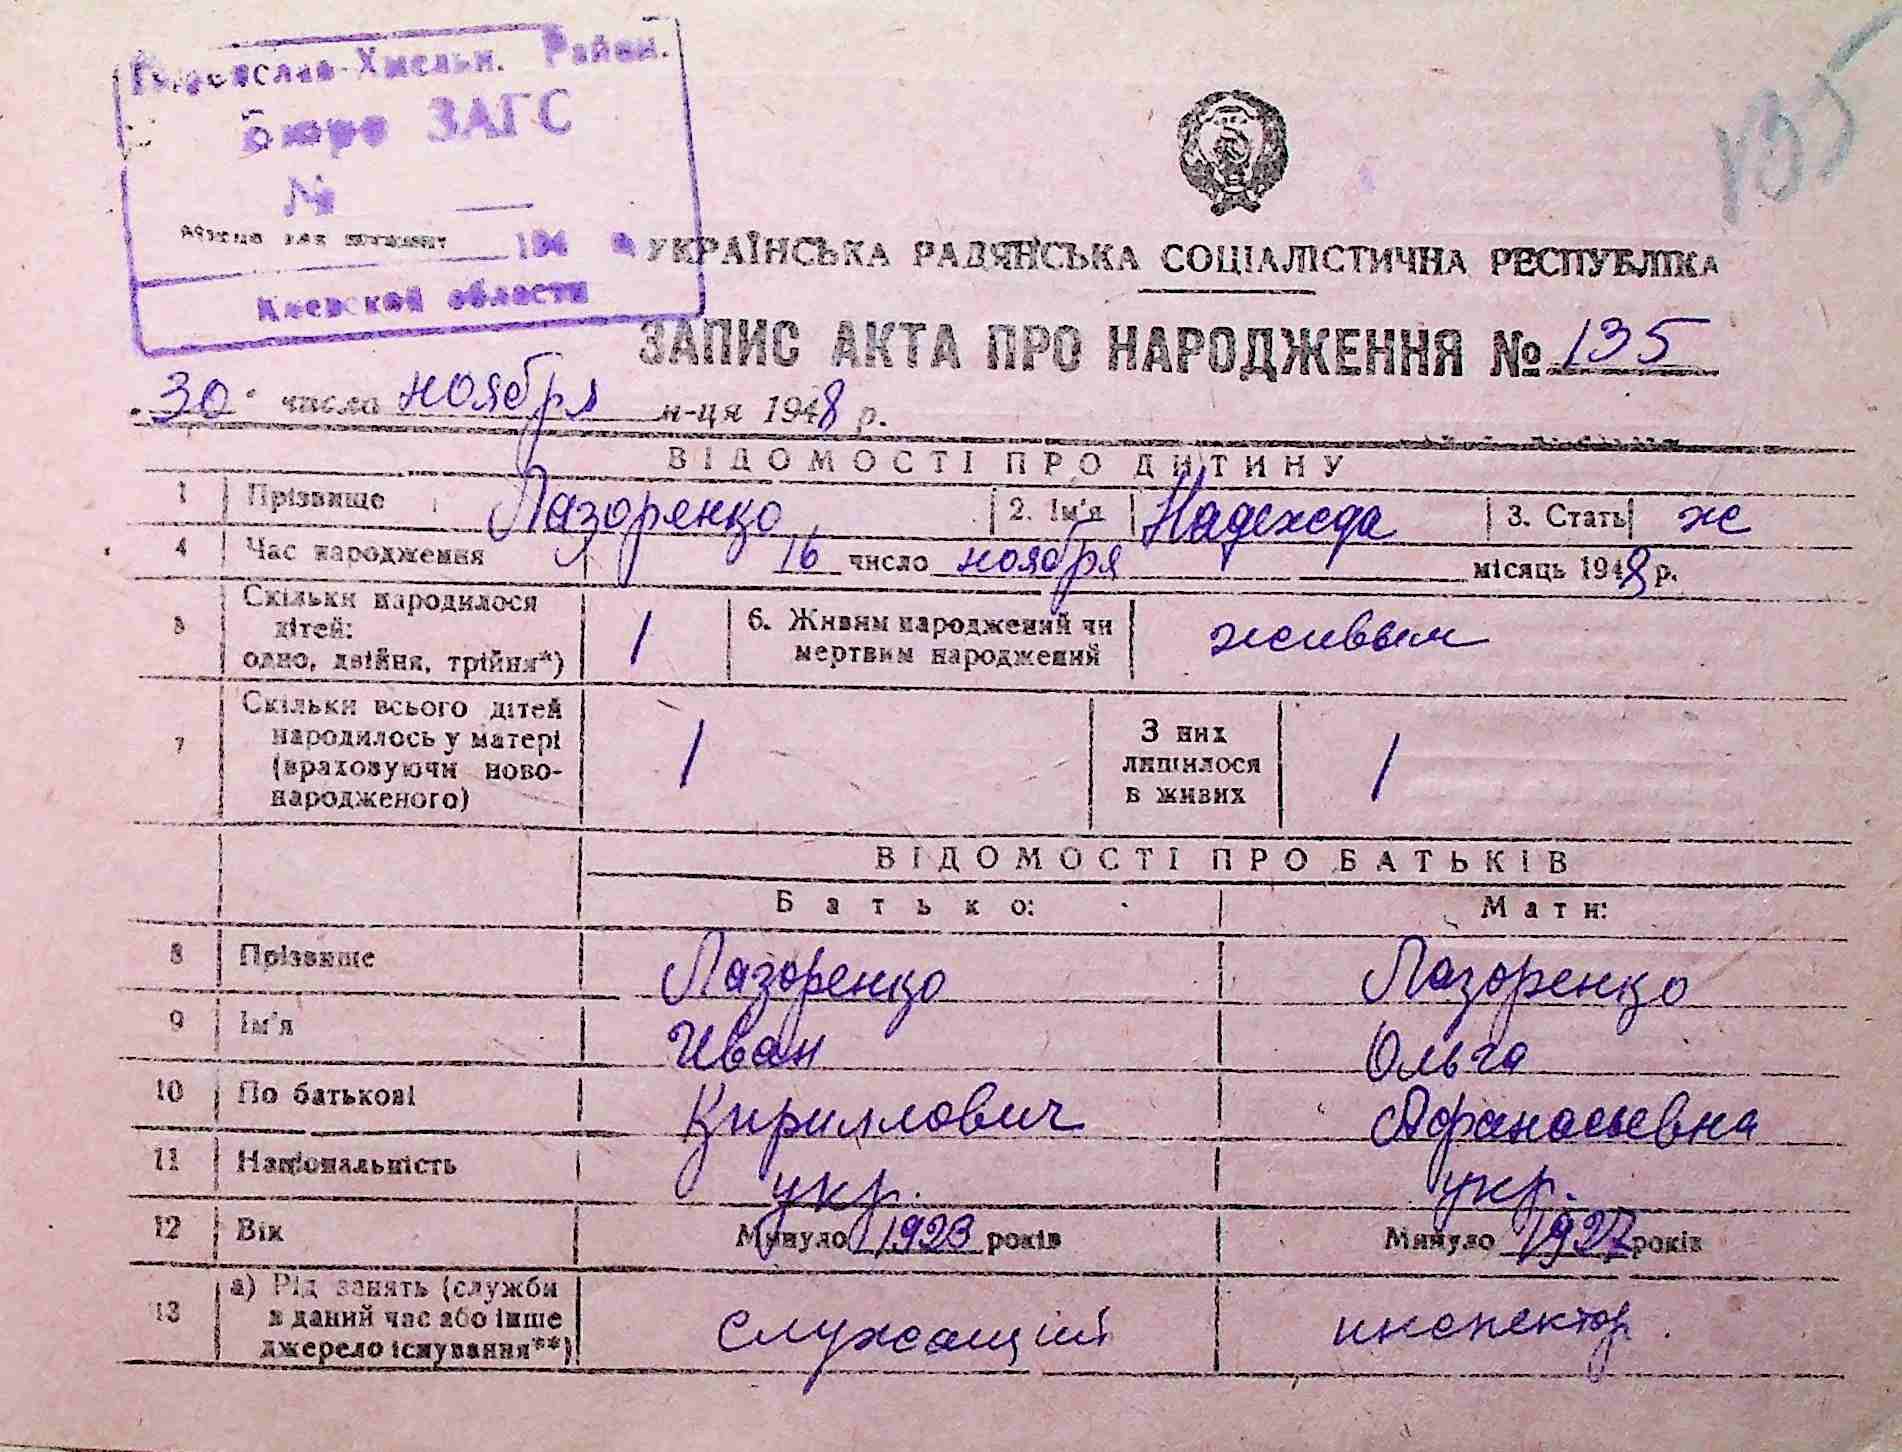 Переяслав-Хмельн. Район.
Бюро ЗАГС
№
194
Киевской области
135
УКРАЇНСЬКА РАДЯНСЬКА СОЦІАЛІСТИЧНА РЕСПУБЛІКА
ЗАПИС АКТА ПРО НАРОДЖЕННЯ № 135
"30" число ноября м-ця 1948 р.
ВІДОМОСТІ ПРО ДИТИНУ
1 Прізвище Лазоренко 2. Ім'я Надежда 3. Стать ж
4 Час народження 16 число ноября місяць 1948 р.
5 Скільки народилося дітей: одно, двійня, трійня*) 1 6. Живим народжений чи мертвим народжений живым
7 Скільки всього дітей народилось у матері (враховуючи ново-народженого) 1 З них лишилося в живих 1
ВІДОМОСТІ ПРО БАТЬКІВ
Батько: Мати:
8 Прізвище Лазоренко Лазоренко
9 Ім'я Иван Ольга
10 По батькові Кириллович Афанасьевна
11 Національність укр. укр.
12 Вік Минуло 1923 років Минуло 1927 років
13 а) Рід занять (служби в даний час або інше джерело існування**) служащий инспектор